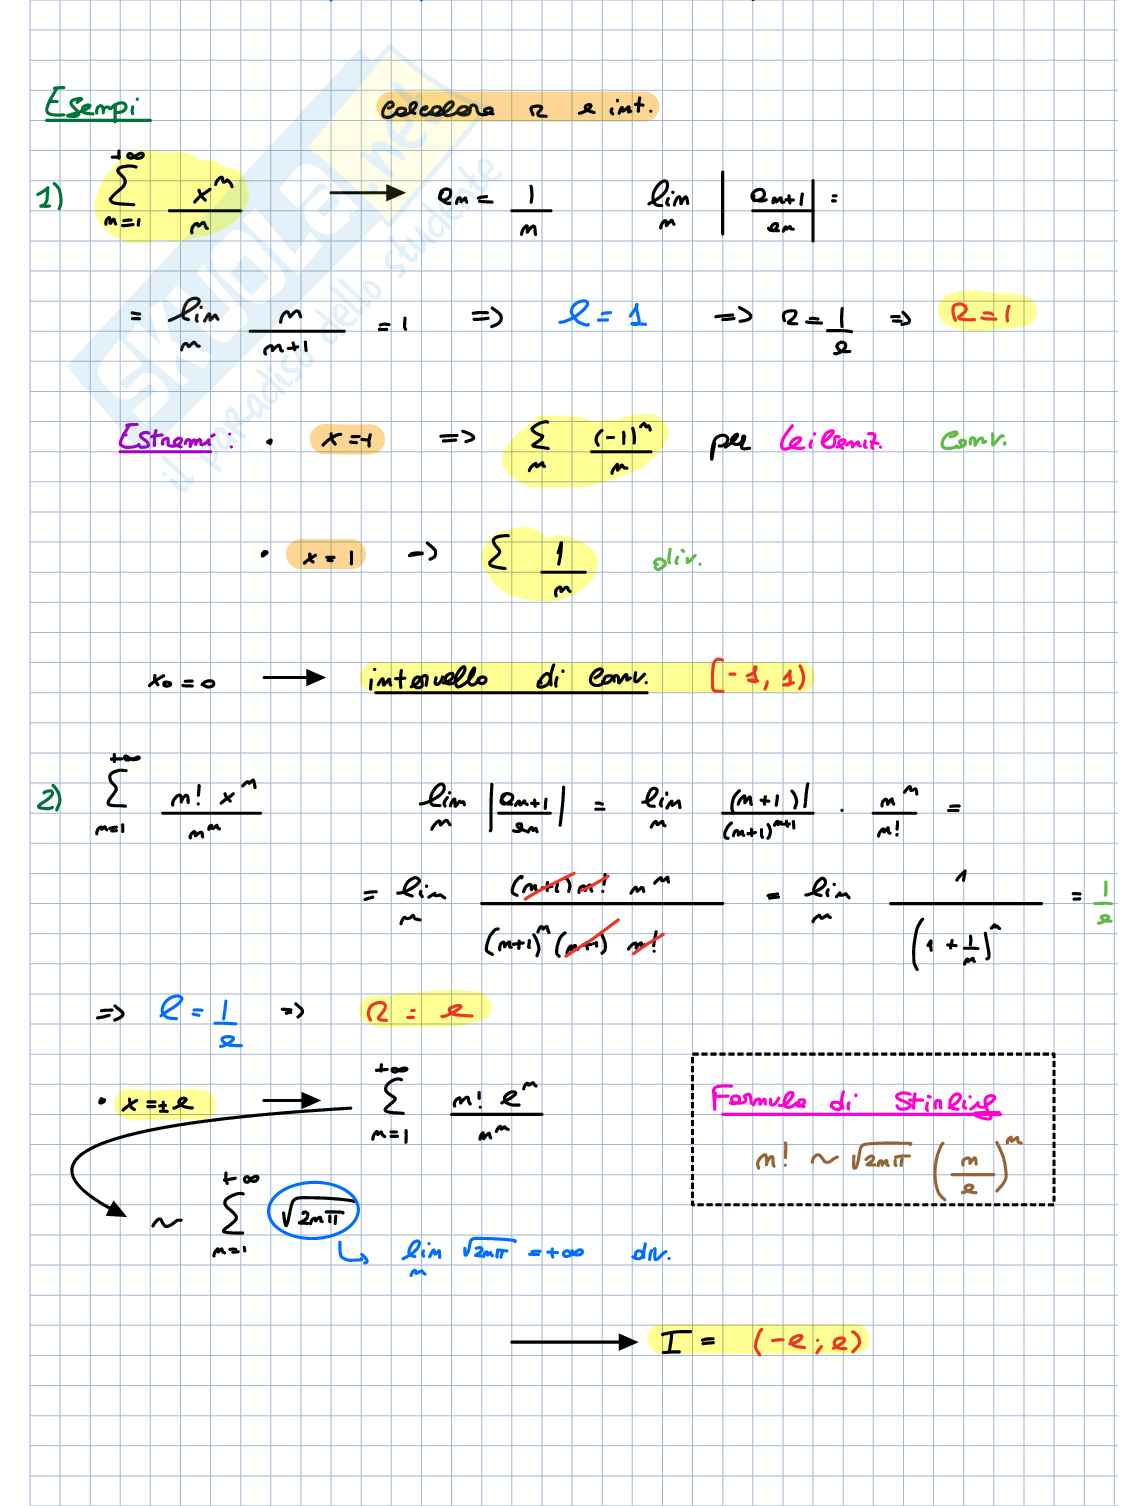 Esempi calcolare R e int.
1) +∞ ∑ n=1 x^n / n → an = 1/n lim n |an+1 / an| =
= lim n n / n+1 = 1 => l = 1 => R = 1/l => R = 1
Estremi: • x = -1 => ∑ n (-1)^n / n per Leibniz. Conv.
• x = 1 -> ∑ 1/n div.
x0 = 0 → intervallo di Conv. [-1, 1)
2) +∞ ∑ n=1 n! x^n / n^n lim n |an+1 / an| = lim n (n+1)! / (n+1)^n+1 · n^n / n! =
= lim n (n+1) n! n^n / (n+1)^n (n+1) n! = lim n 1 / (1 + 1/n)^n = 1/e
=> l = 1/e => R = e
• x = ± e → +∞ ∑ n=1 n! e^n / n^n
Formula di Stirling
n! ~ √2nπ (n/e)^n
~ +∞ ∑ n=1 √2nπ
lim n √2nπ = +∞ div.
→ I = (-e ; e)
SKUOLA.net
il paradiso dello studente